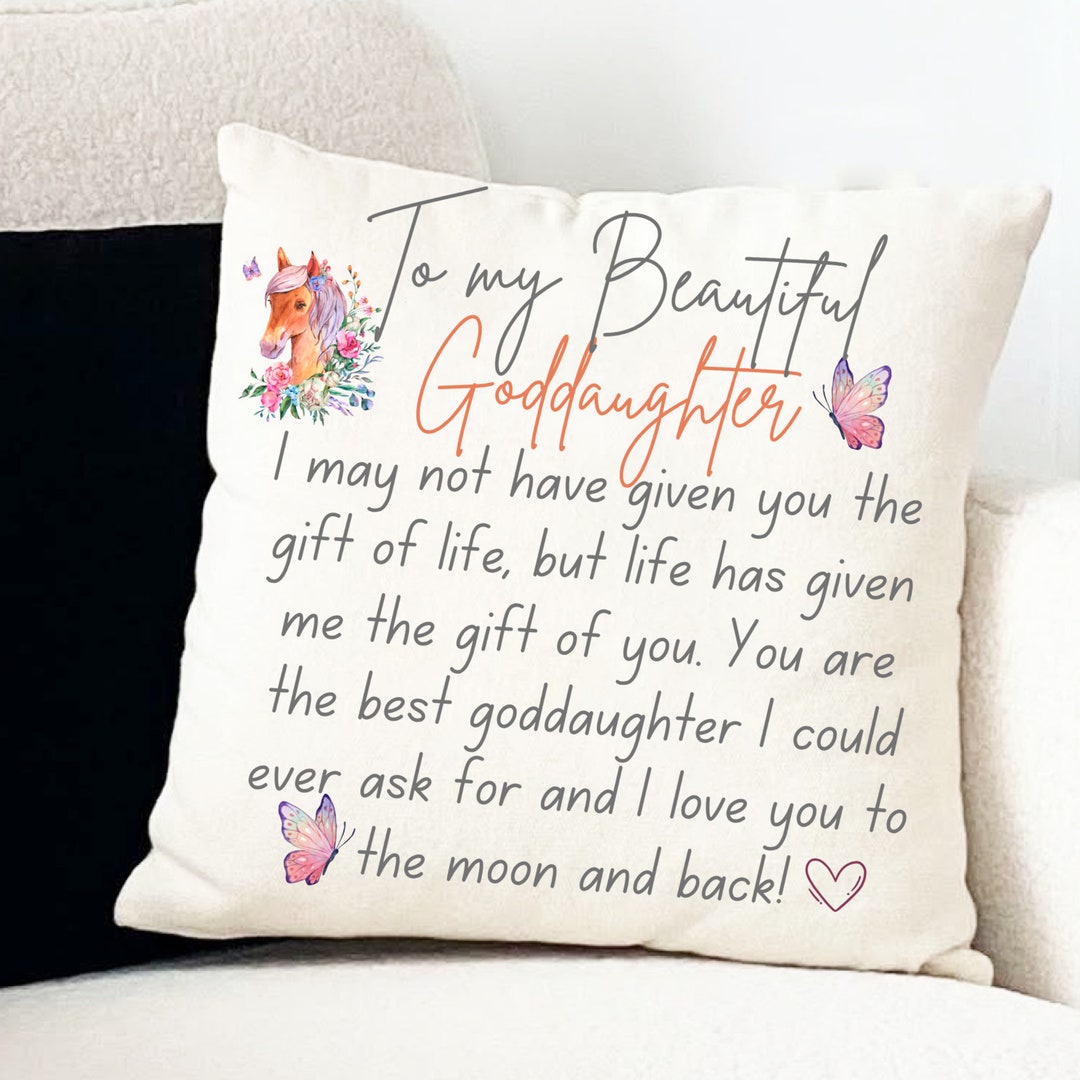 To my Beautiful
Goddaughter
I may not have given you the
gift of life, but life has given
me the gift of you. You are
the best goddaughter I could
ever ask for and I love you to
the moon and back!